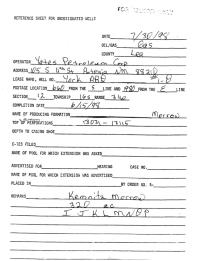 REFERENCE SHEET FOR UNDESIGNATED WELLS
DATE 7/30/98
OIL/GAS Gas
COUNTY Lea
OPERATOR Yates Petroleum Corp
ADDRESS 105 S 4th St Artesia NM 88210
LEASE NAME, WELL NO. York ARB
FOOTAGE LOCATION 660 FROM THE S LINE AND FROM THE E LINE
SECTION 12 TOWNSHIP 16S RANGE
COMPLETION DATE 6/15/98
NAME OF PRODUCING FORMATION Morrow
TOP OF PERFORATIONS
DEPTH TO CASING SHOE
C-123 FILED
NAME OF POOL FOR WHICH EXTENSION WAS ASKED
ADVERTISED FOR HEARING CASE NO.
NAME OF POOL FOR WHICH EXTENSION WAS ADVERTISED
PLACED IN BY ORDER NO. R-
REMARKS Kemnitz Morrow
320 ac
I J K L M N O P